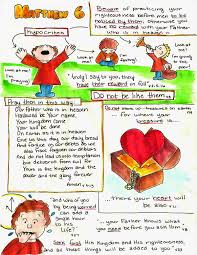 Matthew 6
Beware of practicing your
righteousness before men to be
noticed by them; otherwise you
have no reward with your Father
who is in heaven
Hypocrites
Look at me!
Look at me!
Look at
"truly I say to you, they
have their reward in full"
Pray then in this way
Do not be like them
Our Father who is in heaven
Hallowed be Your name
Your Kingdom come
Your will be done
On earth as it is in heaven
Give us this day our daily bread
And forgive us our debts as we
also have forgiven our debtors
And do not lead us into temptation
but deliver us from evil
Yours is the Kingdom and the power
and the glory forever
Amen
for where your
treasure is...
there your heart will
be also
"and who of you
by being worried
can add a
single hour
to his
life?"
...your Father knows what
you need before you ask Him
Seek first His Kingdom and His righteousness,
and all these things will be added to you